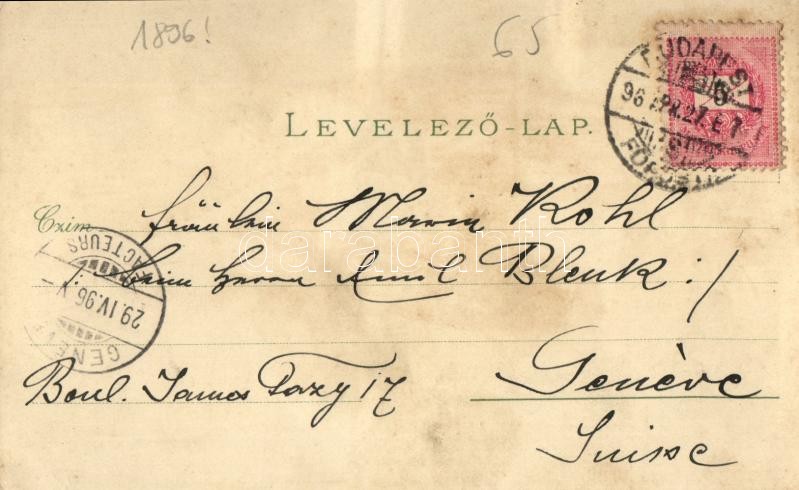 1896!
65
BUDAPEST
5
96 APR. 27. E 7
FŐPOSTA
LEVELEZŐ-LAP.
Czim Fräulein Marie Kohl
/: beim Herrn Emil Blenk :/
Boul. James Fazy 17
Genève
Suisse
GENÈVE
29.IV.96.V
FACTEURS
darabanth